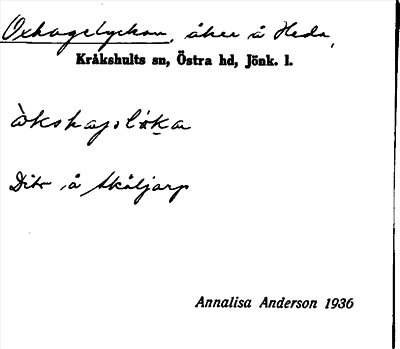 Oxhagelyckan, åker å Heda,
Kråkshults sn, Östra hd, Jönk. l.
Dito å Skäljarp
Annalisa Anderson 1936